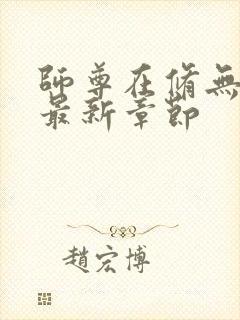 師尊在脩無
最新章節
趙宏博